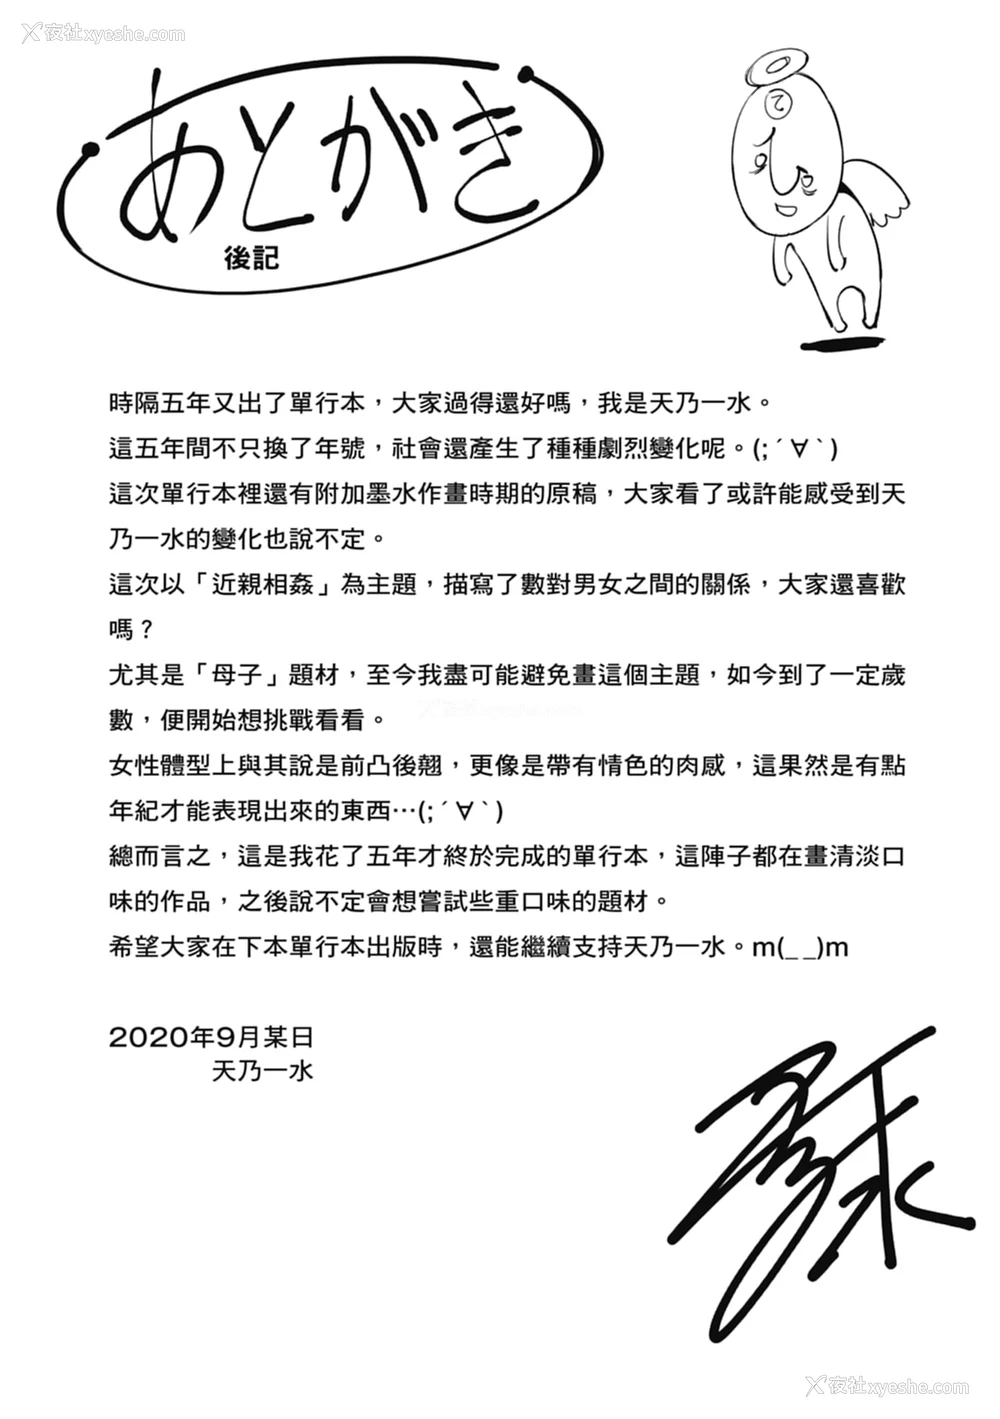 夜社xyeshe.com
あとがき
後記
時隔五年又出了單行本，大家過得還好嗎，我是天乃一水。
這五年間不只換了年號，社會還產生了種種劇烈變化呢。(;´∀`)
這次單行本裡還有附加墨水作畫時期的原稿，大家看了或許能感受到天
乃一水的變化也說不定。
這次以「近親相姦」為主題，描寫了數對男女之間的關係，大家還喜歡
嗎？
尤其是「母子」題材，至今我盡可能避免畫這個主題，如今到了一定歲
數，便開始想挑戰看看。
女性體型上與其說是前凸後翹，更像是帶有情色的肉感，這果然是有點
年紀才能表現出來的東西…(;´∀`)
總而言之，這是我花了五年才終於完成的單行本，這陣子都在畫清淡口
味的作品，之後說不定會想嘗試些重口味的題材。
希望大家在下本單行本出版時，還能繼續支持天乃一水。m(_ _)m
2020年9月某日
天乃一水
夜社xyeshe.com